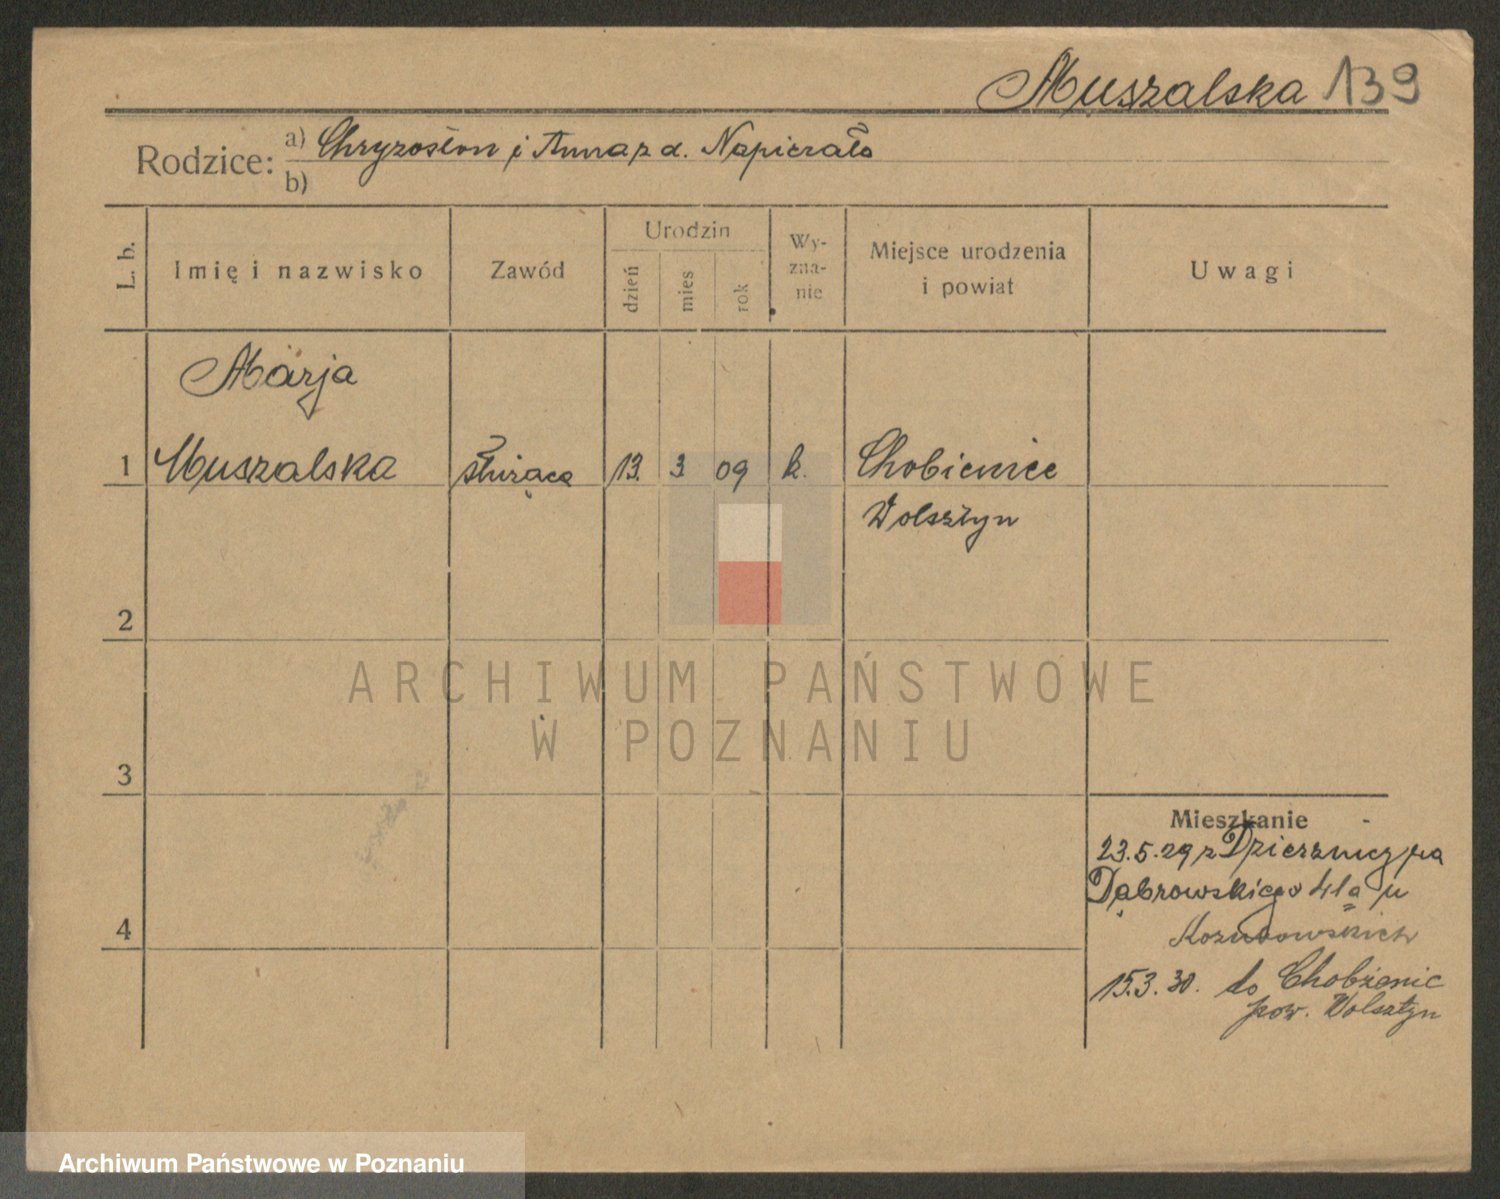 Muszalska 139
Rodzice: a) Chryzoston i Anna z d. Napierała
b)
L. b.
Imię i nazwisko
Zawód
Urodzin
dzień
mies
rok
Wy-
zna-
nie
Miejsce urodzenia
i powiat
Uwagi
Marja
1 Muszalska służąca 13. 3 09 k. Chobienice
Wolsztyn
2
ARCHIWUM PAŃSTWOWE
W POZNANIU
3
Mieszkanie
23.5.29 z Dzierznicy na
Dąbrowskiego 41a u
4
15.3.30. do Chobienic
pow. Wolsztyn
Archiwum Państwowe w Poznaniu